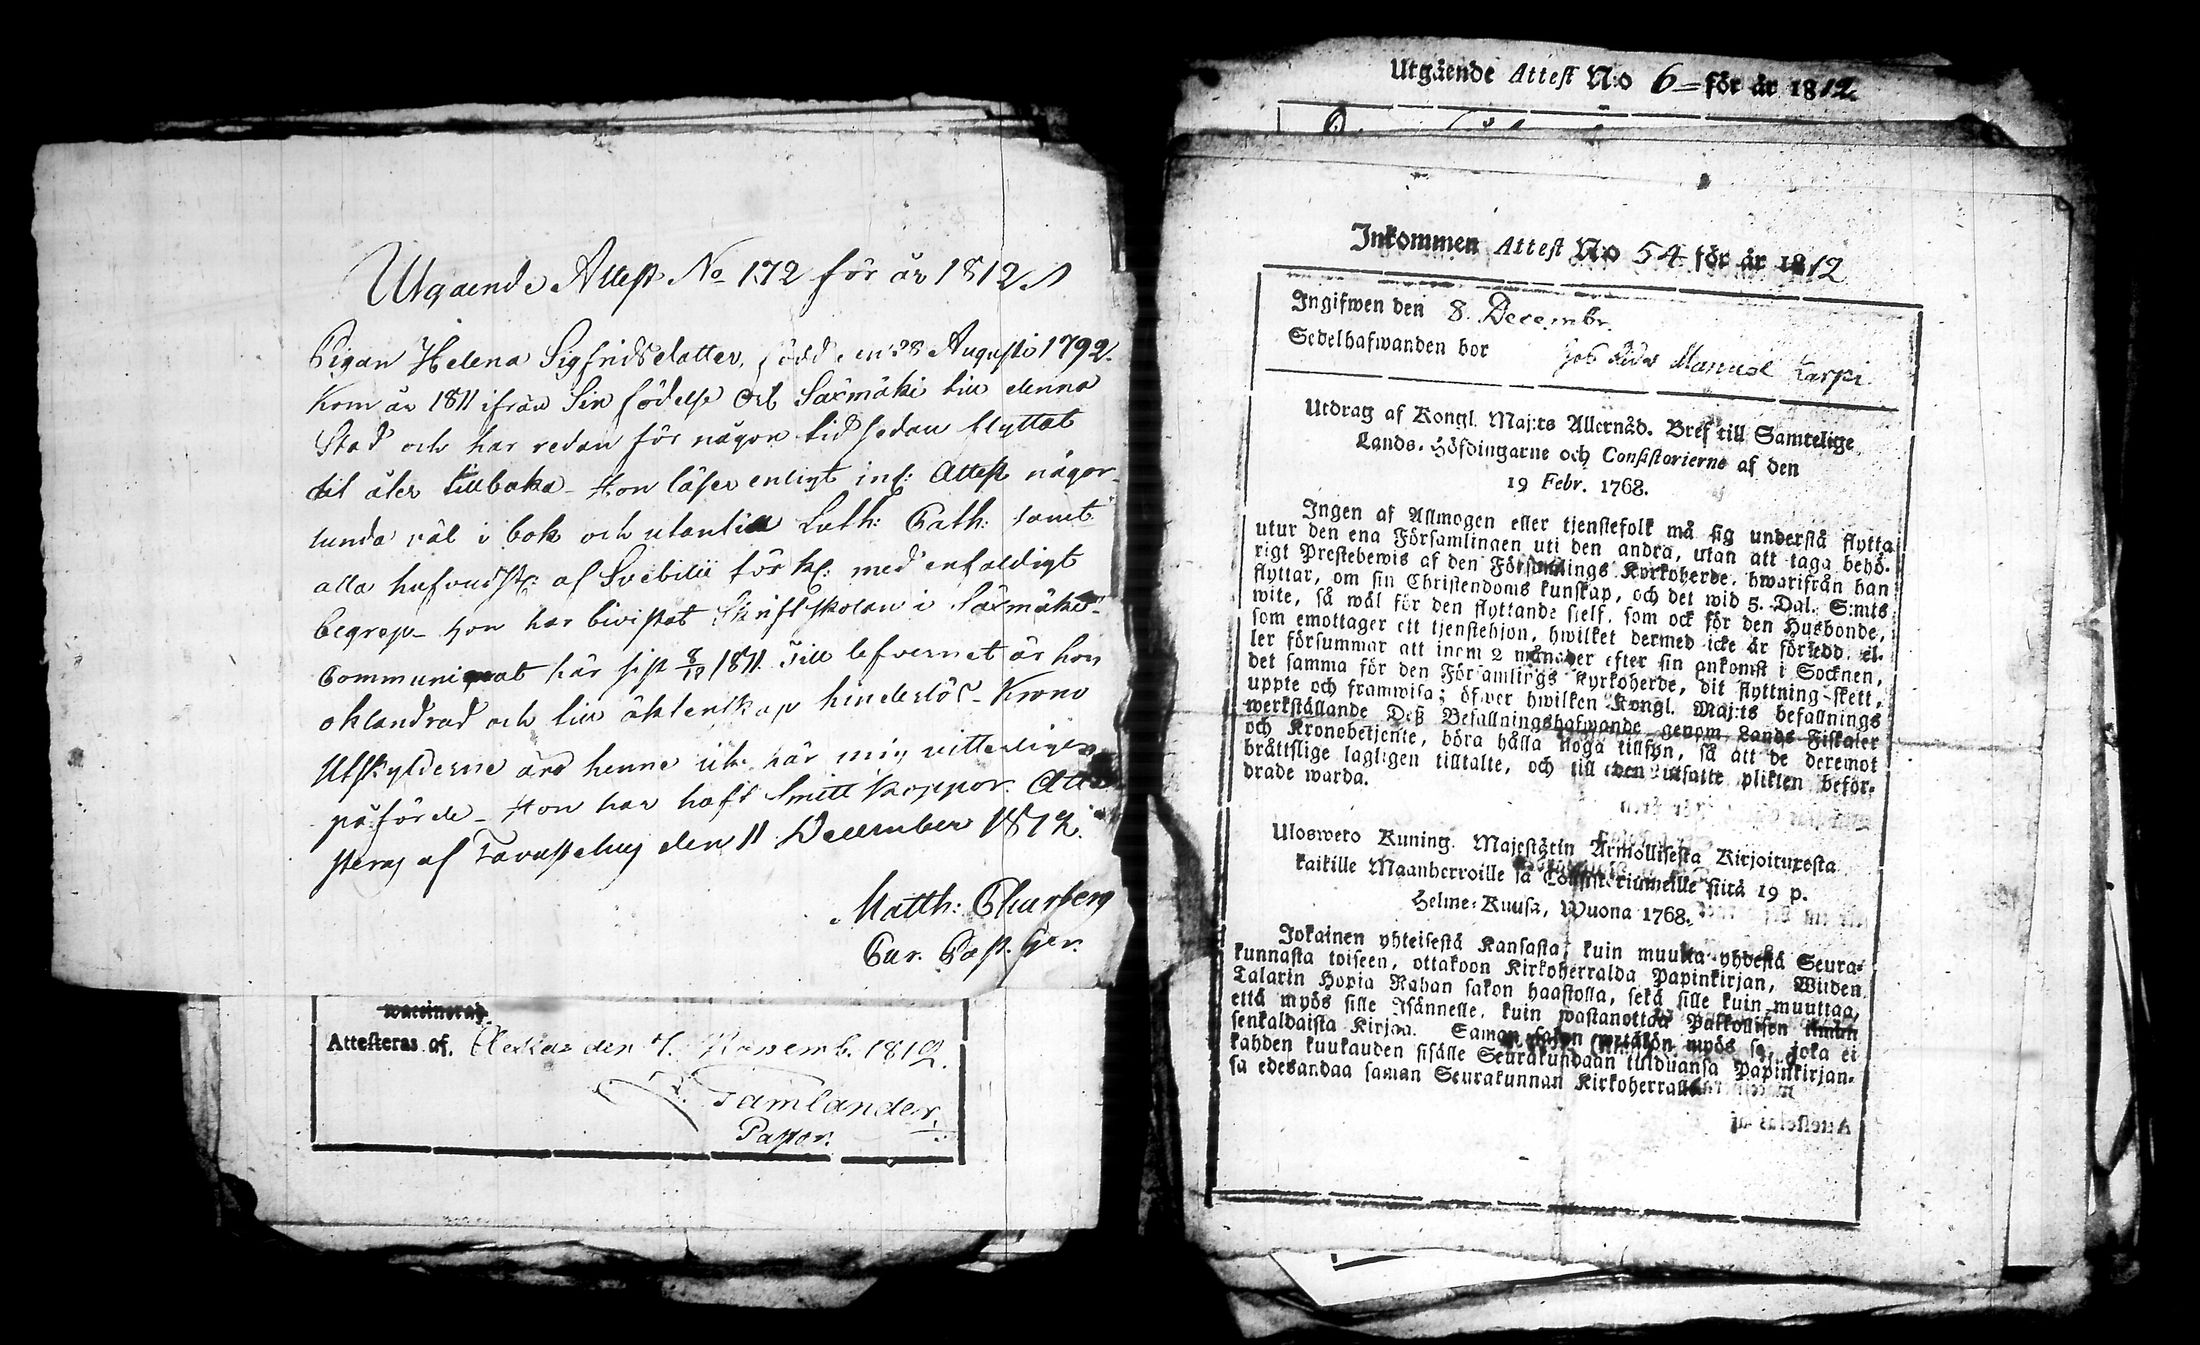 Utgaende Attest No 172 för år 1812
Pigan Helena Sigfridsdotter, född en 28 Augusti 1792.
Kom år 1811 ifrån Sin födelse Ort Säxmäki till denna
Stad och har redan för någon tid sedan flyttat
dit åter tillbaka - Hon läser enligt ink: Attest någor-
lunda väl i bok och utantill Luth: Cath: samt
alla hufvudst: af Svebilii förkl: med enfaldigt
begrep - Hon har bivistat Skriftskolan i Säxmäki
Communicerat här sist 8/12 1811. Till lefvernet är hon
oklandrad och till äktenskap hinderlös - Krono
Utskylderne äro henne ick: här mig vitterligen
påförde - Hon har haft Smitt koppor. Atte
steras af Tavastehus den 11 December 1812.
Matth: Churberg
Cur. Past. Ger.
waccineras.
Attesteras af. den 7. Novemb. 1812.
Tamlander.
Pastor.
Utgående Attest N:o 6 för år 1812.
Inkommen Attest No 54 för år 1812
Ingifwen den 8. Decembr.
Sedelhafwanden bor Manuel Karpi
Utdrag af Kongl. Maj:ts Allernåd. Bref till Samtelige
Lands-Höfdingarne och Consistorierne af den
19 Febr. 1768.
Ingen af Allmogen eller tjenstefolk må sig understå flytta
utur den ena Församlingen uti den andra, utan att taga behö-
rigt Prestebewis af den Församlings Kyrkoherde, hwarifrån han
flyttar, om sin Christendoms kunskap, och det wid 5. Dal. S:mts
wite, så wäl för den flyttande sielf, som ock för den Husbonde,
som emottager ett tjenstehjon, hwilket dermed icke är försedd, el-
ler försummar att inom 2 månader efter sin ankomst i Socknen,
det samma för den Församlings Kyrkoherde, dit flyttning skett,
uppte och framwisa; öfwer hwilken Kongl. Maj:ts befallnings
werkställande Deß Befallningshafwande genom Lands Fiskaler
och Kronobetjente, böra hålla noga tillsyn, så att de deremot
bråttslige lagligen tilltalte, och till den utsatte plikten beför-
drade warda.
Uloswero Kuning. Majestätin Armollisesta Kirjoituxesta
kaikille Maanherroille ja Consistoriumeille siitä 19 p.
Helme-Kuusa, Wuona 1768.
Jokainen yhteisestä Kansasta, kuin muutta yhdestä Seura-
kunnasta toiseen, ottakoon Kirkoherralda Papinkirjan, Wiiden
Talarin Hopia Rahan sakon haastolla, sekä sille kuin muuttaa,
että myös sille Isännelle, kuin wastanottaa Palkollisen ilman
senkaldaista Kirjaa. Saman sakon wetäkön myös se, joka ei
kahden kuukauden sisälle Seurakundaan tulduansa Papinkirjan-
sa edesandaa saman Seurakunnan Kirkoherralle